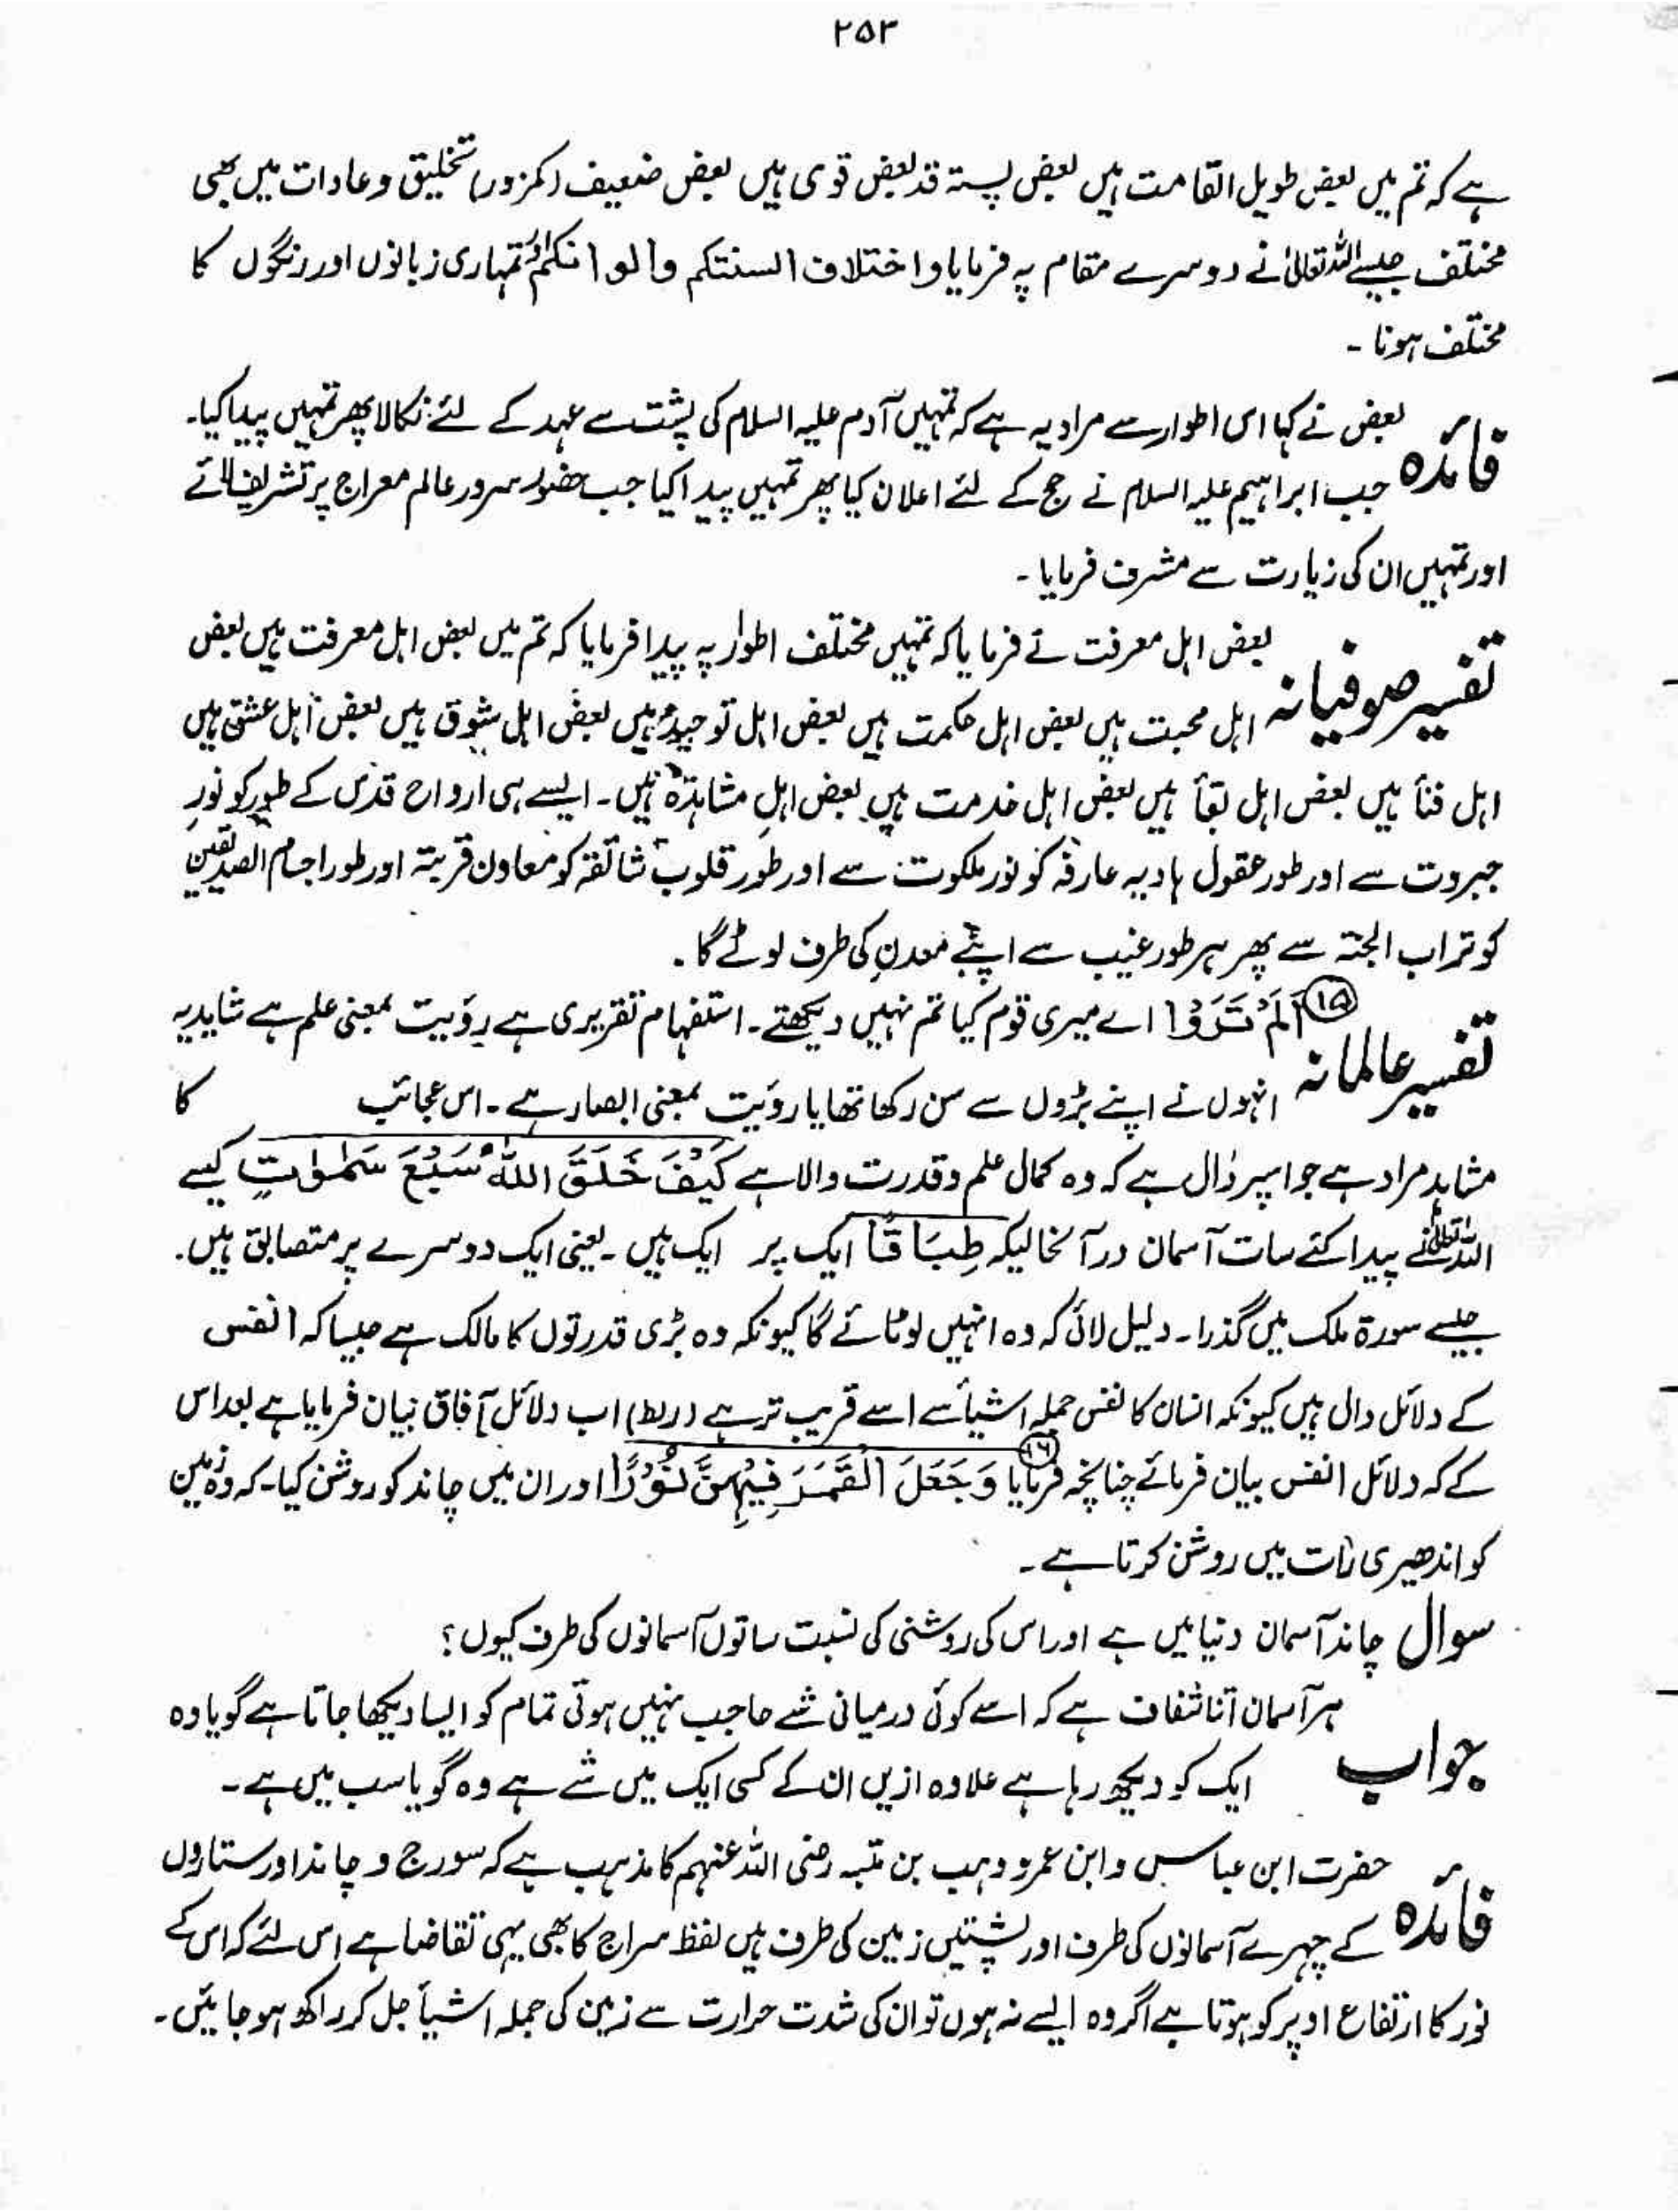 ۲۵۳
ہے کہ تم میں بعض طویل القامت ہیں بعض پستہ قد بعض قوی ہیں بعض ضعیف (کمزور) تخلیق و عادات میں بھی
مختلف جیسے اللہ تعالیٰ نے دوسرے مقام پہ فرمایا واختلاف السنتکم والوانکم اور تمہاری زبانوں اور رنگوں کا
مختلف ہونا ۔
فائدہ بعض نے کہا اس اطوار سے مراد یہ ہے کہ تمہیں آدم علیہ السلام کی پشت سے عہد کے لئے نکالا پھر تمہیں پیدا کیا۔
جب ابراہیم علیہ السلام نے حج کے لئے اعلان کیا پھر تمہیں پیدا کیا جب حضور سرور عالم معراج پر تشریف لائے
اور تمہیں ان کی زیارت سے مشرف فرمایا ۔
تفسیر صوفیانہ بعض اہل معرفت نے فرمایا کہ تمہیں مختلف اطوار پہ پیدا فرمایا کہ تم میں بعض اہل معرفت ہیں بعض
اہل محبت ہیں بعض اہل حکمت ہیں بعض اہل توحید ہیں بعض اہل شوق ہیں بعض اہل عشق ہیں
اہل فنأ ہیں بعض اہل بقأ ہیں بعض اہل خدمت ہیں بعض اہل مشاہدہ ہیں ۔ ایسے ہی ارواح قدس کے طور کو نور
جبروت سے اور طور عقول ہادیہ عارفہ کو نور ملکوت سے اور طور قلوب شائقہ کو معاون قربتہ اور طور اجسام الصدیقین
کو تراب الجنتہ سے پھر ہر طور غیب سے اپنے معدن کی طرف لوٹے گا ۔
تفسیر عالمانہ ۱۵ اَلَمْ تَرَوْا اے میری قوم کیا تم نہیں دیکھتے ۔ استفہام تقریری ہے رویت بمعنی علم ہے شاید یہ
انہوں نے اپنے بڑوں سے سن رکھا تھا یا رویت بمعنی ابصار ہے ۔ اس عجائب کا
مشاہدہ مراد ہے جو اسپر دال ہے کہ وہ کمال علم و قدرت والا ہے کَیْفَ خَلَقَ اللّٰهُ سَبْعَ سَمٰوٰتٍ کیسے
اللہ تعالیٰ نے پیدا کئے سات آسمان در آنحالیکہ طِبَاقًا ایک پر ایک ہیں ۔ یعنی ایک دوسرے پر متصابق ہیں ۔
جیسے سورۃ ملک میں گذرا ۔ دلیل لائی کہ وہ انہیں لوٹائے گا کیونکہ وہ بڑی قدرتوں کا مالک ہے جیسا کہ انفس
کے دلائل دال ہیں کیونکہ انسان کا نفس جملہ اشیأ سے اسے قریب تر ہے (ربط) اب دلائل آفاق بیان فرمایا ہے بعد اس
کے کہ دلائل انفس بیان فرمائے چنانچہ فرمایا ۱۶ وَجَعَلَ الْقَمَرَ فِیْهِنَّ نُوْرًا اور ان میں چاند کو روشن کیا ۔ کہ وہ زمین
کو اندھیری رات میں روشن کرتا ہے ۔
سوال چاند آسمان دنیا میں ہے اور اس کی روشنی کی نسبت ساتوں آسمانوں کی طرف کیوں ؟
جواب ہر آسمان اتنا شفاف ہے کہ اسے کوئی درمیانی شے حاجب نہیں ہوتی تمام کو ایسا دیکھا جاتا ہے گویا وہ
ایک کو دیکھ رہا ہے علاوہ ازیں ان کے کسی ایک میں شے ہے وہ گویا سب میں ہے ۔
فائدہ حضرت ابن عباس و ابن عمر و وہب بن متبہ رضی اللہ عنہم کا مذہب ہے کہ سورج و چاند اور ستاروں
کے چہرے آسمانوں کی طرف اور پشتیں زمین کی طرف ہیں لفظ سراج کا بھی یہی تقاضا ہے اس لئے کہ اس کے
نور کا ارتفاع اوپر کو ہوتا ہے اگر وہ ایسے نہ ہوں تو ان کی شدت حرارت سے زمین کی جملہ اشیأ جل کر راکھ ہو جائیں ۔